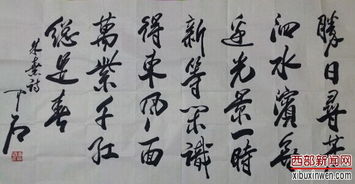 勝日尋芳
泗水濱無
邊光景一時
新等閑識
得東風面
萬紫千紅
總是春
朱熹詩
西部新闻网
xibuxinwen.com